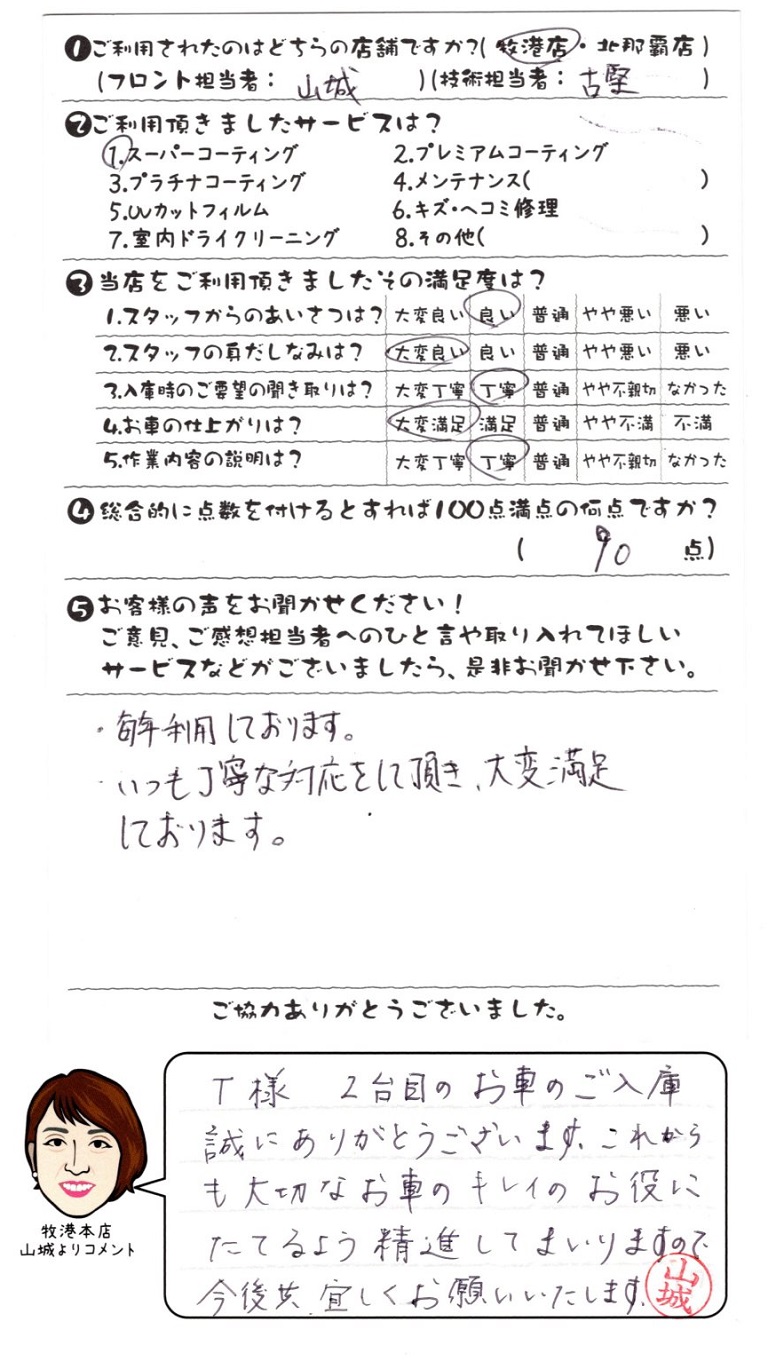 ❶ご利用されたのはどちらの店舗ですか?(牧港店・北那覇店)
(フロント担当者: 山城 )(技術担当者: 古堅 )
❷ご利用頂きましたサービスは?
1.スーパーコーティング 2.プレミアムコーティング
3.プラチナコーティング 4.メンテナンス( )
5.UVカットフィルム 6.キズ・ヘコミ修理
7.室内ドライクリーニング 8.その他( )
❸当店をご利用頂きましたその満足度は?
1.スタッフからのあいさつは? 大変良い 良い 普通 やや悪い 悪い
2.スタッフの身だしなみは? 大変良い 良い 普通 やや悪い 悪い
3.入庫時のご要望の聞き取りは? 大変丁寧 丁寧 普通 やや不親切 なかった
4.お車の仕上がりは? 大変満足 満足 普通 やや不満 不満
5.作業内容の説明は? 大変丁寧 丁寧 普通 やや不親切 なかった
❹総合的に点数を付けるとすれば100点満点の何点ですか?
( 90 点)
❺お客様の声をお聞かせください!
ご意見、ご感想担当者へのひと言や取り入れてほしい
サービスなどがございましたら、是非お聞かせ下さい。
・毎年利用しております。
・いつも丁寧な対応をして頂き、大変満足
しております。
ご協力ありがとうございました。
T様 2台目のお車のご入庫
誠にありがとうございます。これから
も大切なお車のキレイのお役に
たてるよう精進してまいりますので
今後共、宜しくお願いいたします。
山城
牧港本店
山城よりコメント